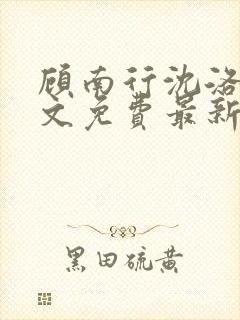 顾南行沈洛
文免费最新
黑田硫黄